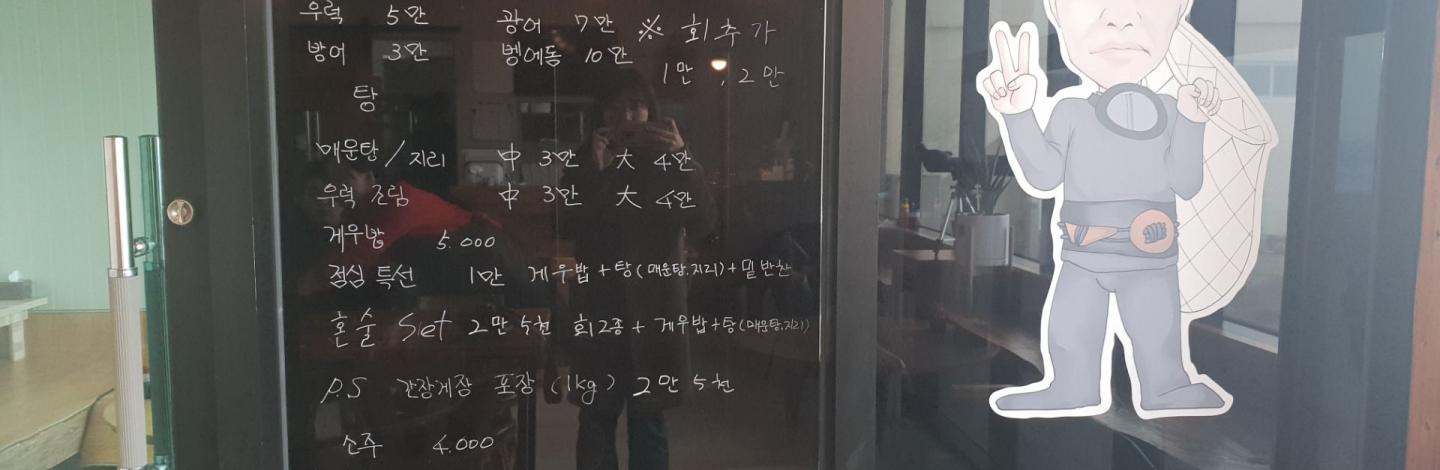 우럭 5만 광어 7만 ※ 회추가
방어 3만 벵에돔 10만 1만, 2만
탕
매운탕/지리 中 3만 大 4만
우럭 조림 中 3만 大 4만
게우밥 5.000
점심 특선 1만 게우밥+탕(매운탕.지리)+밑반찬
혼술 Set 2만 5천 회2종+게우밥+탕(매운탕.지리)
P.S 간장게장 포장 (1kg) 2만 5천
소주 4.000